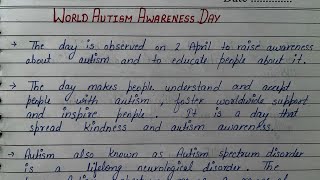 Date ..............
WORLD AUTISM AWARENESS DAY
→ The day is observed on 2 April to raise awareness
about autism and to educate people about it.
→ The day makes people understand and accept
people with autism, foster worldwide support
and inspire people. It is a day that
spread kindness and autism awareness.
→ Autism also known as Autism spectrum disorder
is a lifelong neurological disorder. The